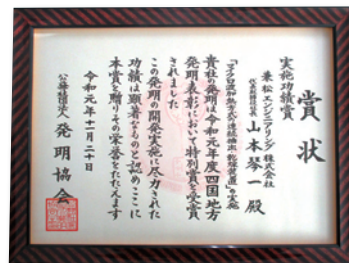 賞状
実施功績賞
兼松エンジニアリング株式会社
代表取締役社長 山本琴一殿
「マイクロ波加熱方式の連続抽出・乾燥装置」の実施
貴社の発明は令和元年度四国地方
発明表彰において特別賞を受賞
されました
この発明の開発実施に尽力された
功績は顕著なものと認めここに
本賞を贈りその栄誉をたたえます
令和元年十一月二十日
公益社団法人 発明協会